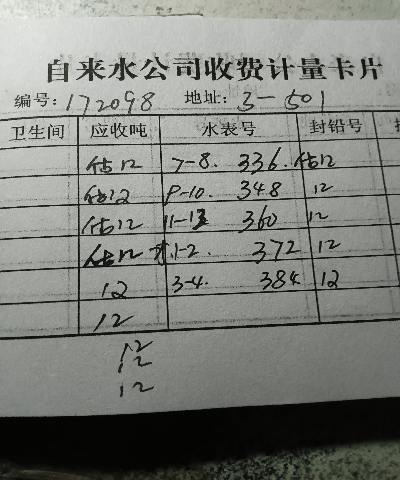 自来水公司收费计量卡片
编号: 172098 地址: 3-501
卫生间 应收吨 水表号 封铅号
估12 7-8. 336. 估12
估12 9-10. 348 12
估12 11-12 360 12
估12 1-2. 372 12
12 3-4. 384 12
12
12
12
12